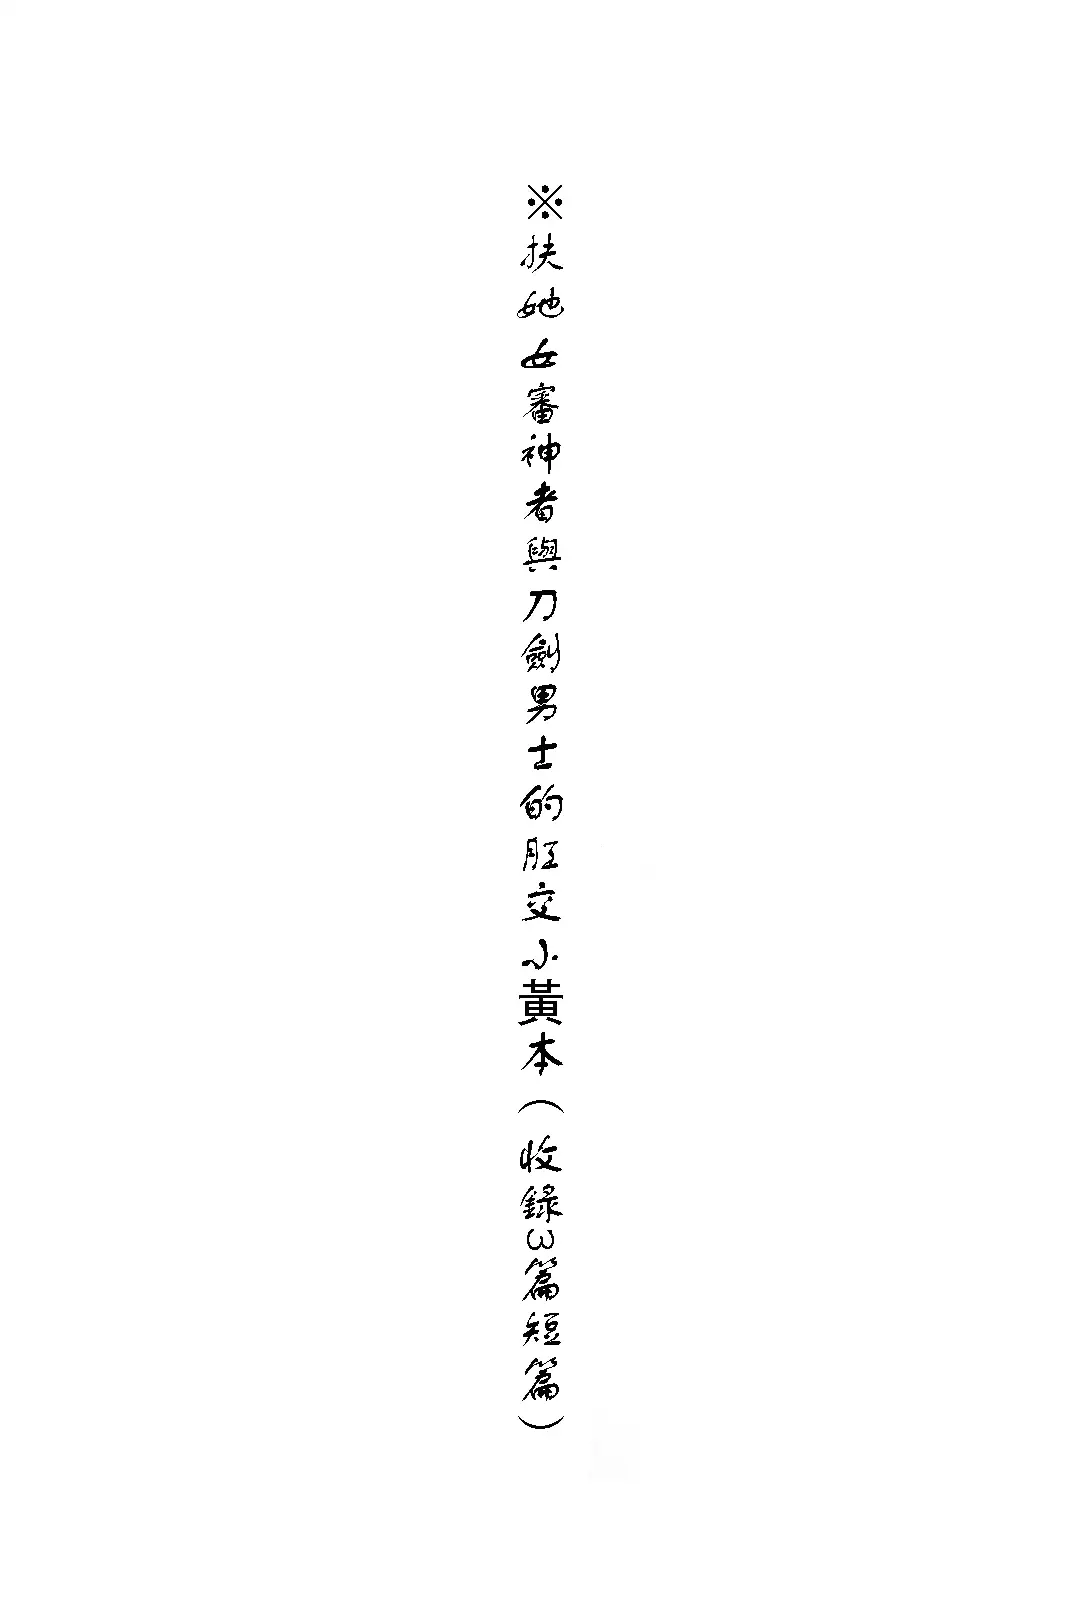 ※扶她女審神者與刀劍男士的肛交小黃本(收錄3篇短篇)